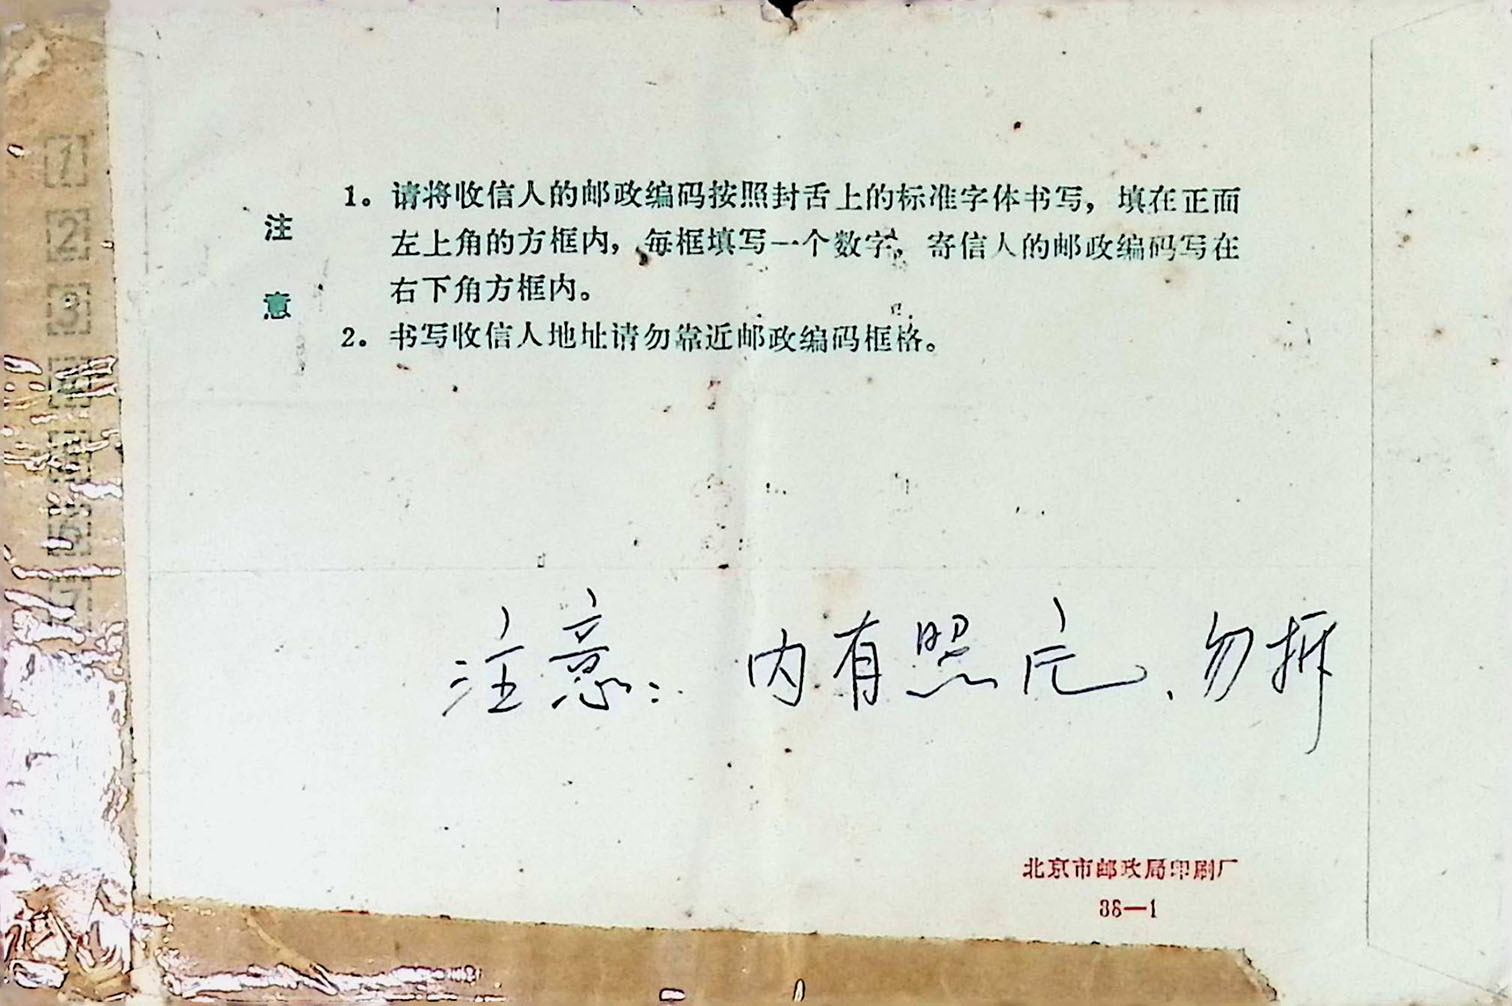 1
2
3
注意
1。请将收信人的邮政编码按照封舌上的标准字体书写，填在正面
左上角的方框内，每框填写一个数字，寄信人的邮政编码写在
右下角方框内。
2。书写收信人地址请勿靠近邮政编码框格。
注意：内有照片、勿拆
北京市邮政局印刷厂
38—1